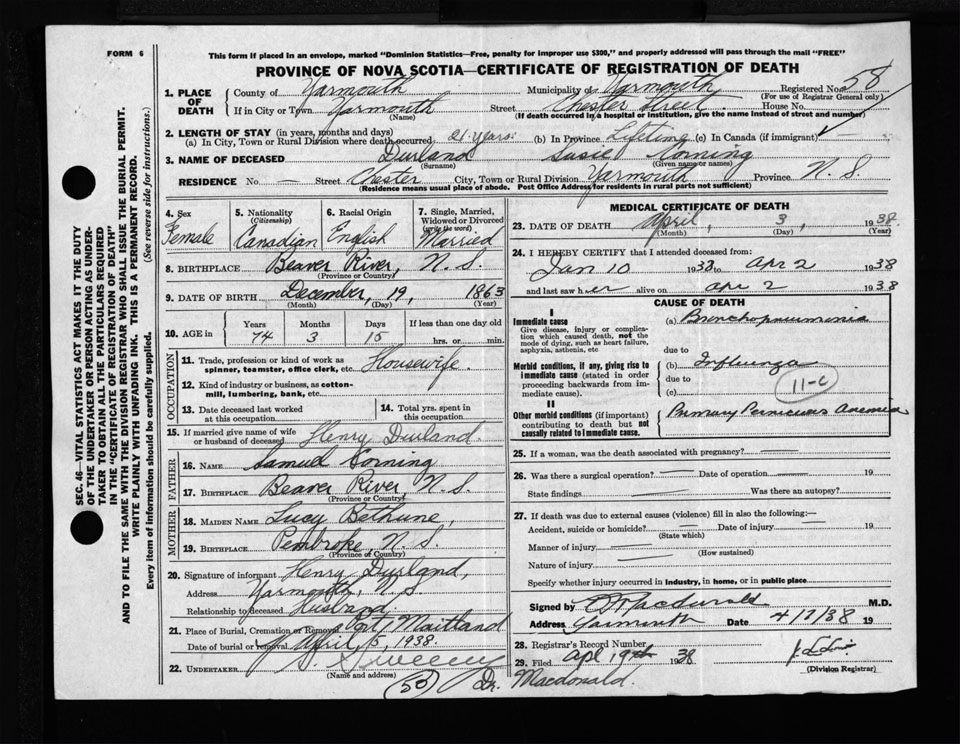 FORM 6
This form if placed in an envelope, marked "Dominion Statistics—Free, penalty for improper use $300," and properly addressed will pass through the mail "FREE"
PROVINCE OF NOVA SCOTIA—CERTIFICATE OF REGISTRATION OF DEATH
SEC. 46—VITAL STATISTICS ACT MAKES IT THE DUTY
OF THE UNDERTAKER OR PERSON ACTING AS UNDER-
TAKER TO OBTAIN ALL THE PARTICULARS REQUIRED
IN THE "CERTIFICATE OF REGISTRATION OF DEATH"
AND TO FILE THE SAME WITH THE DIVISION REGISTRAR WHO SHALL ISSUE THE BURIAL PERMIT.
WRITE PLAINLY WITH UNFADING INK. THIS IS A PERMANENT RECORD.
Every item of information should be carefully supplied. (See reverse side for instructions.)
1. PLACE OF DEATH County of Yarmouth Municipality of Yarmouth Registered No. 58
(For use of Registrar General only)
If in City or Town Yarmouth Street Chester Street House No.
(Name) (If death occurred in a hospital or institution, give the name instead of street and number)
2. LENGTH OF STAY (in years, months and days)
(a) In City, Town or Rural Division where death occurred 21 years. (b) In Province Lifetime (c) In Canada (if immigrant) —
3. NAME OF DECEASED Durland Susie Corning
(Surname) (Given name or names)
RESIDENCE No. — Street Chester City, Town or Rural Division Yarmouth Province N. S.
(Residence means usual place of abode. Post Office Address for residents in rural parts not sufficient)
4. Sex 5. Nationality (Citizenship) 6. Racial Origin 7. Single, Married, Widowed or Divorced (write the word)
Female Canadian English Married
8. BIRTHPLACE Beaver River, N. S.
(Province or Country)
9. DATE OF BIRTH December, 19, 1863
(Month) (Day) (Year)
10. AGE in Years Months Days If less than one day old
74 3 15 hrs. or min.
OCCUPATION
11. Trade, profession or kind of work as spinner, teamster, office clerk, etc. Housewife.
12. Kind of industry or business, as cotton-mill, lumbering, bank, etc.
13. Date deceased last worked at this occupation
14. Total yrs. spent in this occupation
15. If married give name of wife or husband of deceased Henry Durland.
FATHER
16. NAME Samuel Corning
17. BIRTHPLACE Beaver River, N. S.
(Province or Country)
MOTHER
18. MAIDEN NAME Lucy Bethune,
19. BIRTHPLACE Pembroke N. S.
(Province or Country)
20. Signature of informant Henry Durland,
Address Yarmouth, N. S.
Relationship to deceased Husband.
21. Place of Burial, Cremation or Removal Port Maitland
Date of burial or removal April 5, 1938.
22. UNDERTAKER Sweeny
(Name and address)
(50)
MEDICAL CERTIFICATE OF DEATH
23. DATE OF DEATH April, 3, 1938.
(Month) (Day) (Year)
24. I HEREBY CERTIFY that I attended deceased from:
Jan 10 1933 to Apr 2 1938
and last saw h er alive on Apr 2 1938
CAUSE OF DEATH
I
Immediate cause
Give disease, injury or complication which caused death, not the mode of dying, such as heart failure, asphyxia, asthenia, etc
(a) Bronchopneumonia
due to
Morbid conditions, if any, giving rise to immediate cause (stated in order proceeding backwards from immediate cause)
(b) Influenza
due to
(c)
11-c
II
Other morbid conditions (if important) contributing to death but not causally related to immediate cause.
Primary Pernicious Anemia
25. If a woman, was the death associated with pregnancy? —
26. Was there a surgical operation? — Date of operation — 19
State findings — Was there an autopsy?
27. If death was due to external causes (violence) fill in also the following:—
Accident, suicide or homicide? — Date of injury — 19
(State which)
Manner of injury —
(How sustained)
Nature of injury —
Specify whether injury occurred in industry, in home, or in public place
Signed by Macdonald M.D.
Address Yarmouth Date 4/7/38 19
28. Registrar's Record Number
29. Filed Apl 19th 1938
(Division Registrar)
Dr. Macdonald.